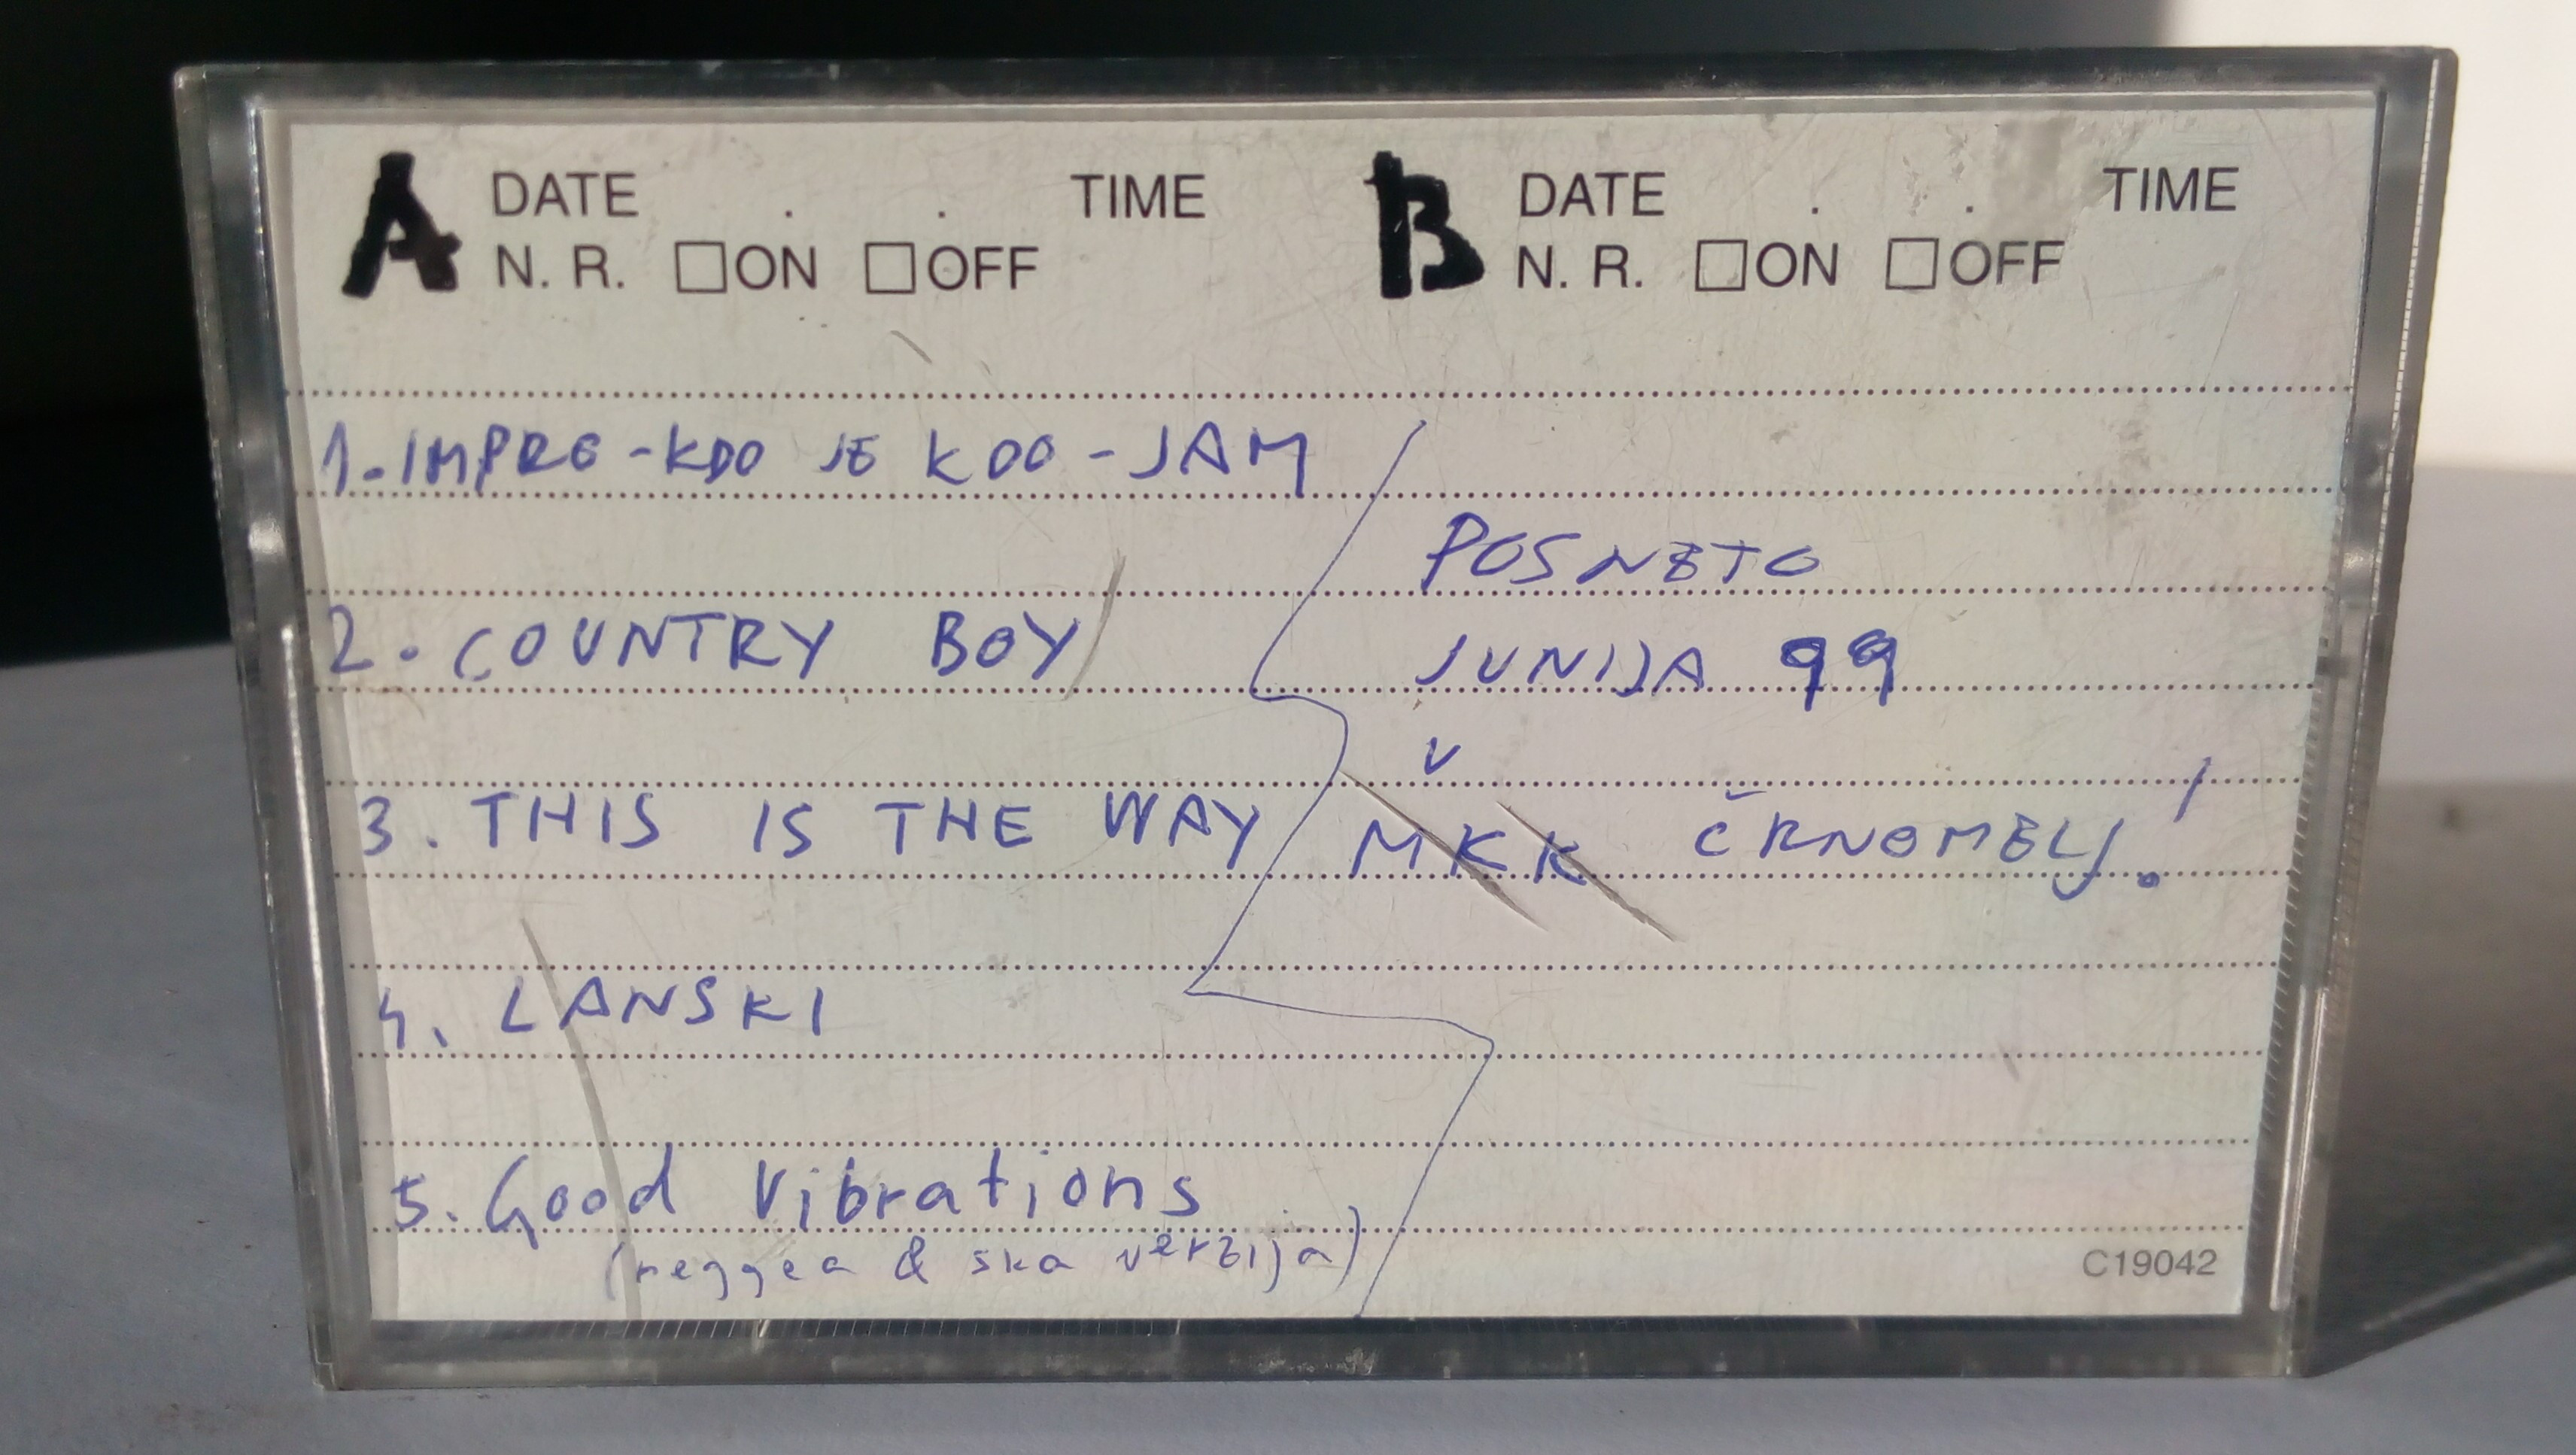 A DATE . . TIME
N. R. ☐ON ☐OFF
1. IMPRO - KDO JE KDO - JAM
2. COUNTRY BOY
3. THIS IS THE WAY
4. LANSKI
5. Good Vibrations
(reggea & ska verzija)
B DATE . . TIME
N. R. ☐ON ☐OFF
POSNETO
JUNIJA 99
V
MKK ČRNOMELJ!
C19042